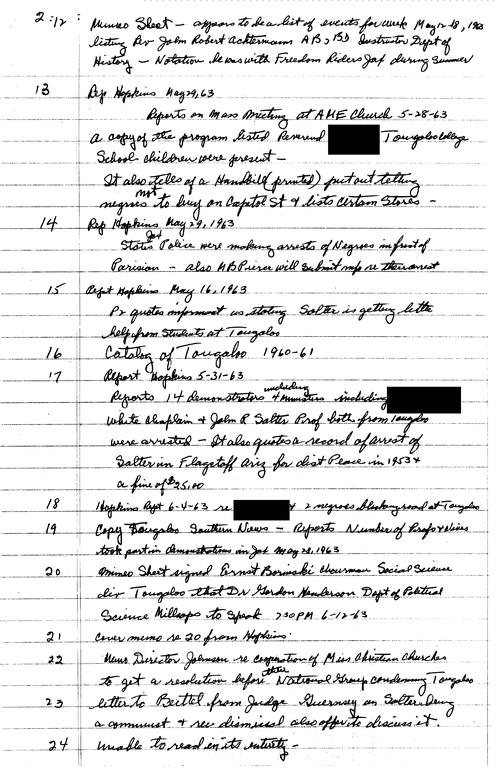 2:12 Mimeo Sheet - appears to be a list of events for week May 12-18, 1963
listing Rev John Robert Achtermann AB, BD Instructor Dept of
History - Notation he was with Freedom Riders Jax during Summer
13 Rep. Hopkins May 29, 63
Reports on Mass Meeting at AME Church 5-28-63
a copy of the program listed Reverend Tougaloo College
School children were present -
It also tells of a Handbill (printed) put out telling
negroes not to buy on Capitol St & lists certain Stores -
14 Rep Hopkins May 29, 1963
States Jax Police were making arrests of Negroes in front of
Parisian - also MB Pierce will submit info re their arrest
15 Rept Hopkins May 16, 1963
P2 quotes informant as stating Salter is getting little
help from Students at Tougaloo
16 Catalog of Tougaloo 1960-61
17 Report Hopkins 5-31-63
Reports 14 demonstrators including 4 ministers including
White Chaplain & John R Salter Prof both from Tougaloo
were arrested - It also quotes a record of arrest of
Salter in Flagstaff Ariz for dist Peace in 1953 &
a fine of $25.00
18 Hopkins Rept 6-4-63 re & 2 negroes blocking road at Tougaloo
19 Copy Tougaloo Southern News - Reports Number of Profs & Wives
took part in demonstrations in Jax May 28, 1963
20 Mimeo Sheet signed Ernst Borinski Chairman Social Science
div Tougaloo that Dr Gordon Henderson Dept of Political
Science Millsaps to Speak 730PM 6-12-63
21 cover memo re 20 from Hopkins.
22 Memo Director Johnson re cooperation of Miss Christian Churches
to get a resolution before their National Group condemning Tougaloo
23 letter to Beittel from Judge Guernsey on Salter being
a communist & rec dismissal also offer to discuss it.
24 unable to read in its entirety -